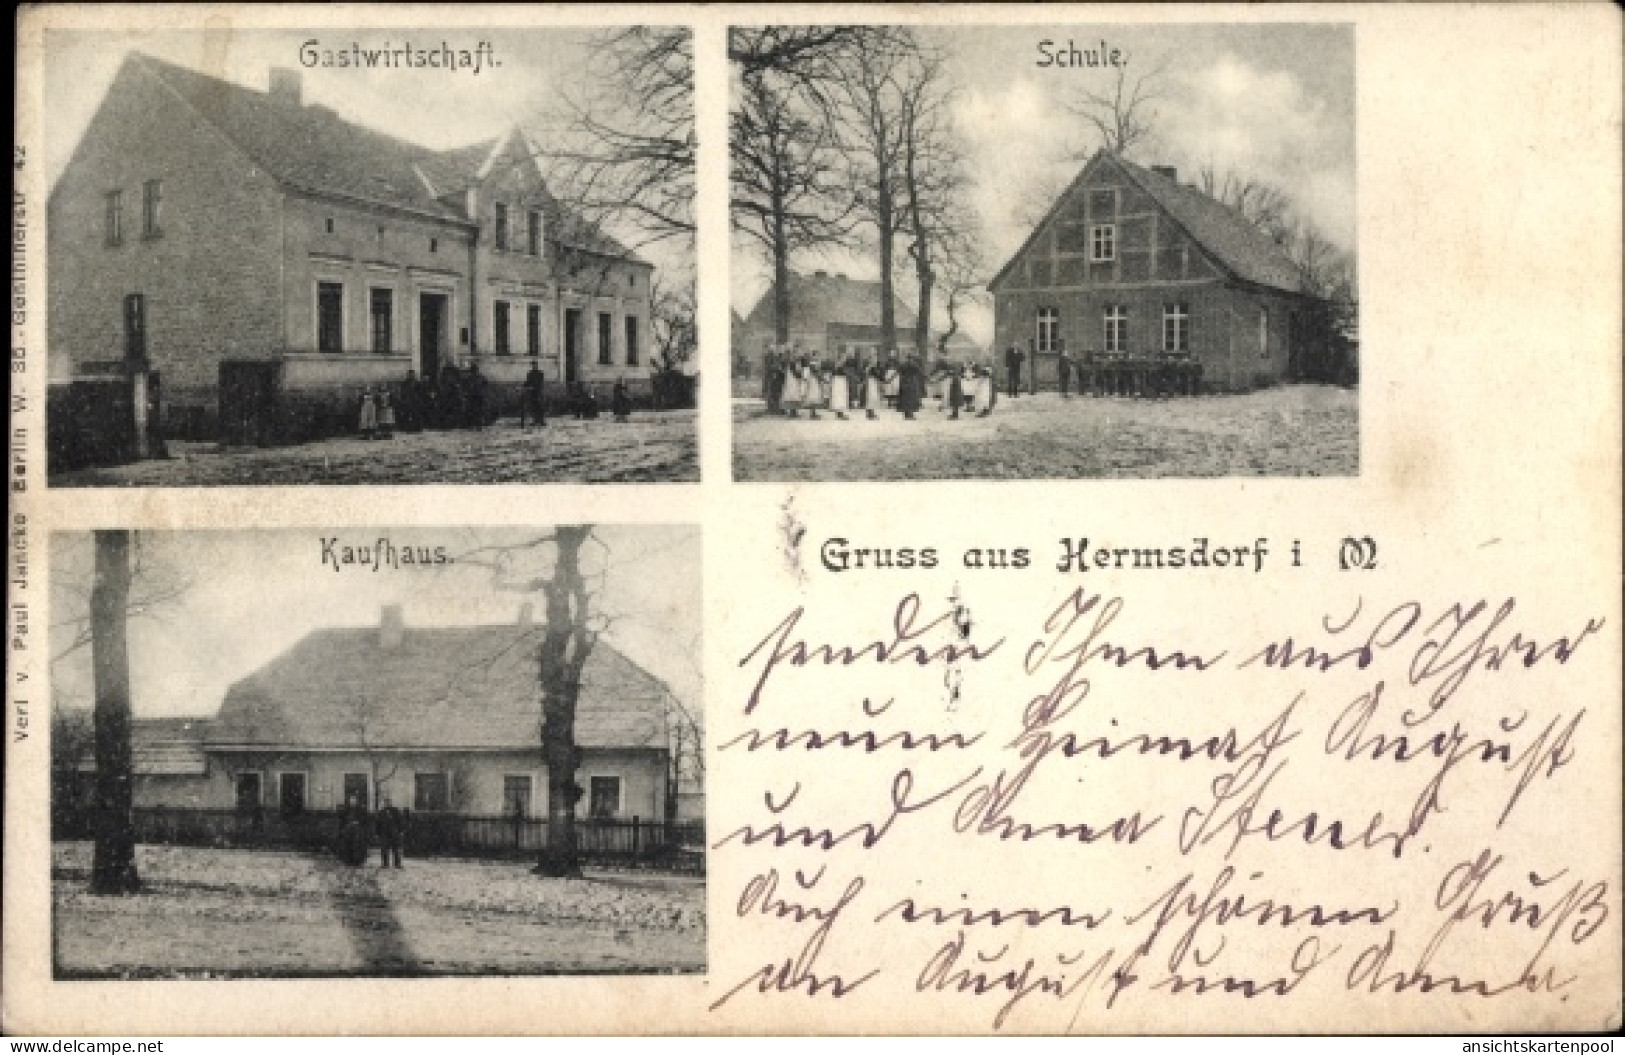 Gastwirtschaft.
Schule.
Kaufhaus.
Verl v. Paul Jancke Berlin W. 30 - Gothinerstr 42
Gruss aus Hermsdorf i M
senden Ihnen aus Ihrer
neuen Heimat August
und Anna
Auch einen schönen Gruß
an August und Anna.
www.delcampe.net
ansichtskartenpool